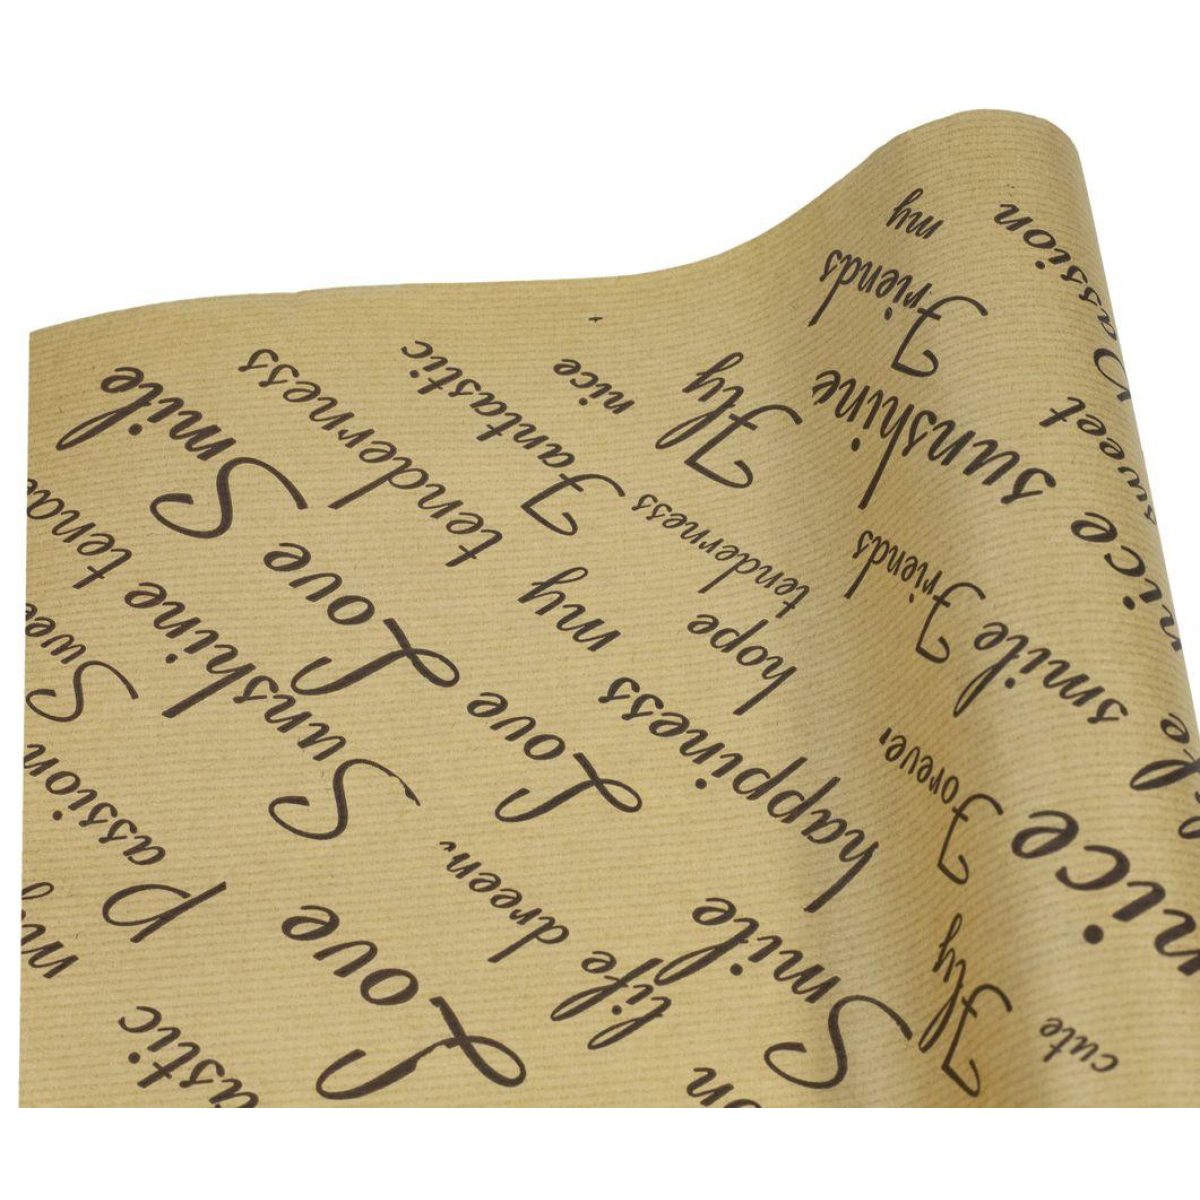 my
Passion
Friends
sweet
nice sunshine
Fly
nice
Fantastic
tenderness
Smile
Friends
smile
tenderness
hope
happiness my
Love
Love
Sunshine
Passion
Forever
nice
Fly
cute
Smile
life
Love
my